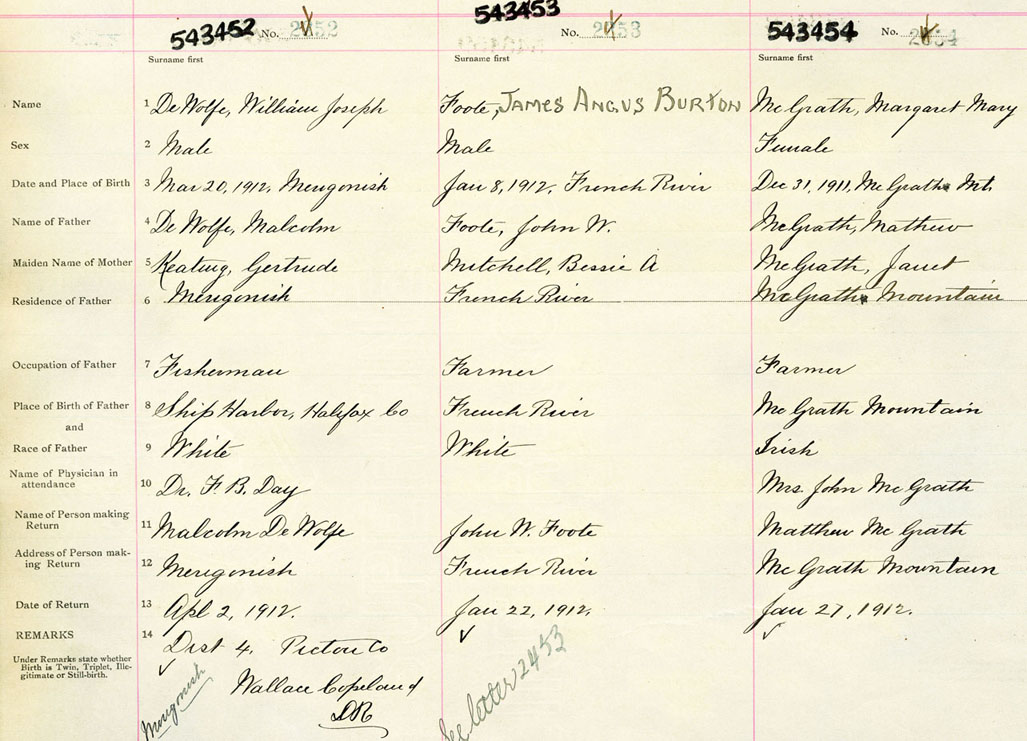 543452 No. 2452 543453 No. 2453 543454 No. 2454
Surname first Surname first Surname first
Name 1 De Wolfe, William Joseph Foote, JAMES ANGUS BURTON McGrath, Margaret Mary
Sex 2 Male Male Female
Date and Place of Birth 3 Mar 20, 1912, Merigonish Jan 8, 1912, French River Dec 31, 1911, McGraths Mt.
Name of Father 4 De Wolfe, Malcolm Foote, John W. McGrath, Mathew
Maiden Name of Mother 5 Keating, Gertrude Mitchell, Bessie A McGrath, Janet
Residence of Father 6 Merigonish French River McGraths Mountain
Occupation of Father 7 Fisherman Farmer Farmer
Place of Birth of Father 8 Ship Harbor, Halifax Co French River McGrath Mountain
and
Race of Father 9 White White Irish
Name of Physician in
attendance 10 Dr. F. B. Day Mrs. John McGrath
Name of Person making
Return 11 Malcolm De Wolfe John W. Foote Matthew McGrath
Address of Person mak-
ing Return 12 Merigonish French River McGrath Mountain
Date of Return 13 Apl 2, 1912. Jan 22, 1912. Jan 27, 1912.
REMARKS 14 Dist 4. Pictou Co
Under Remarks state whether
Birth is Twin, Triplet, Ille-
gitimate or Still-birth.
Wallace Copeland
DR
Merigonish
See letter 2453